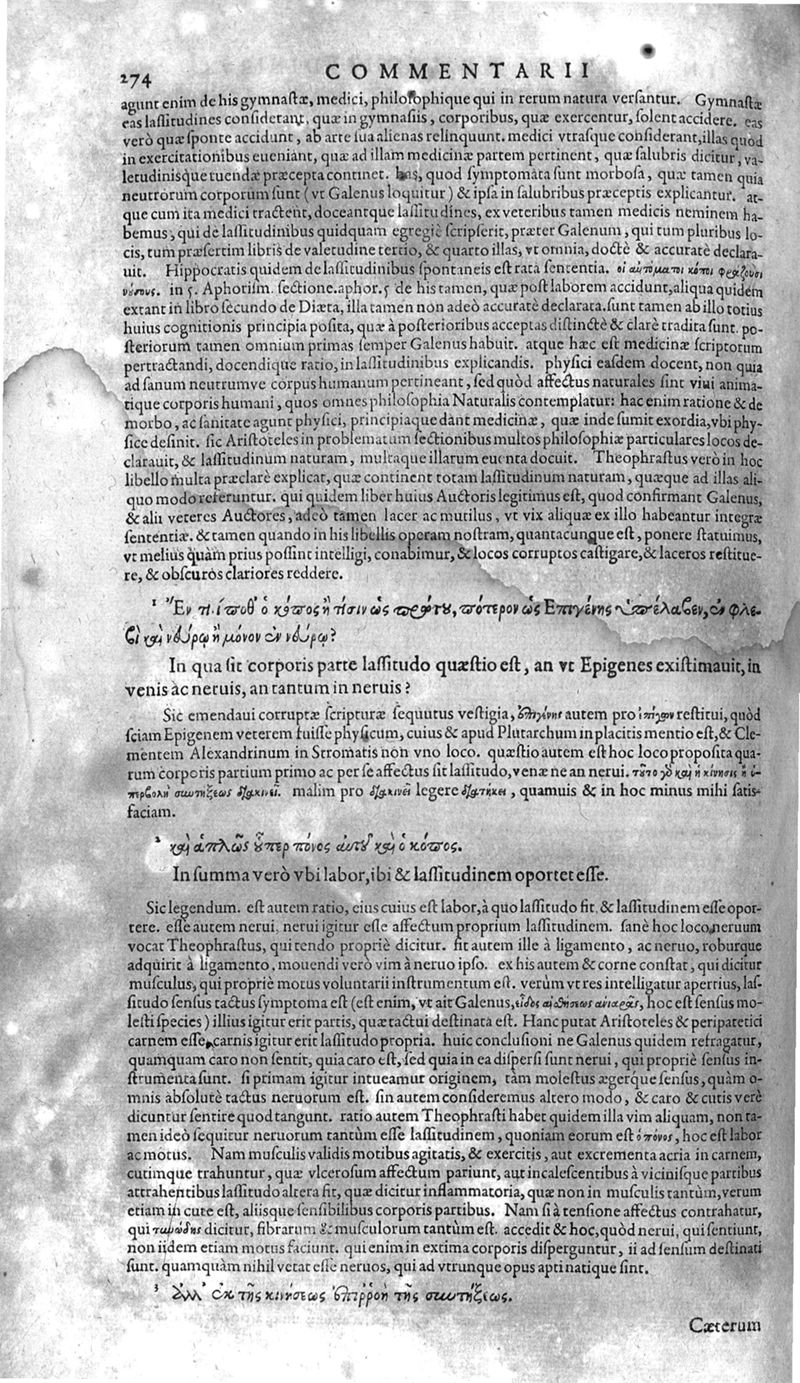 274 COMMENTARII
agunt enim de his gymnastæ, medici, philosophique qui in rerum natura versantur. Gymnastæ
eas lassitudines considerant, quæ in gymnasiis, corporibus, quæ exercentur, solent accidere. eas
verò quæ sponte accidunt, ab arte sua alienas relinquunt. medici vtrasque considerant, illas quòd
in exercitationibus eueniant, quæ ad illam medicinæ partem pertinent, quæ salubris dicitur, va-
letudinisque tuendæ præcepta continet. has, quod symptomata sunt morbosa, quæ tamen quia
neutrorum corporum sunt (vt Galenus loquitur) & ipsa in salubribus præceptis explicantur. at-
que cum ita medici tractent, doceantque lassitudines, ex veteribus tamen medicis neminem ha-
bemus, qui de lassitudinibus quidquam egregiè scripserit, præter Galenum, qui tum pluribus lo-
cis, tum præsertim libris de valetudine tertio, & quarto illas, vt omnia, doctè & accuratè declara-
uit. Hippocratis quidem de lassitudinibus spontaneis est rata sententia. οἱ αὐτόματοι κόποι φράζουσι
νόσους. in 5. Aphorism. sectione. aphor. 5 de his tamen, quæ post laborem accidunt, aliqua quidem
extant in libro secundo de Diæta, illa tamen non adeò accuratè declarata. sunt tamen ab illo totius
huius cognitionis principia posita, quæ à posterioribus acceptas distinctè & clarè tradita sunt. po-
steriorum tamen omnium primas semper Galenus habuit. atque hæc est medicinæ scriptorum
pertractandi, docendique ratio, in lassitudinibus explicandis. physici easdem docent, non quia
ad sanum neutrumve corpus humanum pertineant, sed quòd affectus naturales sint viui anima-
tique corporis humani, quos omnes philosophia Naturalis contemplatur: hac enim ratione & de
morbo, ac sanitate agunt physici, principiaque dant medicinæ, quæ inde sumit exordia, vbi phy-
sice desinit. sic Aristoteles in problematum sectionibus multos philosophiæ particulares locos de-
clarauit, & lassitudinum naturam, multaque illarum euenta docuit. Theophrastus verò in hoc
libello multa præclarè explicat, quæ continent totam lassitudinum naturam, quæque ad illas ali-
quo modo referuntur. qui quidem liber huius Auctoris legitimus est, quod confirmant Galenus,
& alii veteres Auctores, adeò tamen lacer ac mutilus, vt vix aliquæ ex illo habeantur integræ
sententiæ. & tamen quando in his libellis operam nostram, quantacunque est, ponere statuimus,
vt melius quàm prius possint intelligi, conabimur, & locos corruptos castigare, & laceros restitue-
re, & obscuros clariores reddere.
1 Ἔν τι. ποθ' ὁ κόπος ἢ τίσιν ὡς πρώτου, πότερον ὡς Ἐπιγένης ὑπέλαβεν, ἐν φλε-
ψὶ καὶ νεύρῳ ἢ μόνον ἐν νεύρῳ?
In qua sit corporis parte lassitudo quæstio est, an vt Epigenes existimauit, in
venis ac neruis, an tantum in neruis?
Sic emendaui corruptæ scripturæ sequutus vestigia, ἐπιγένης autem pro restitui, quòd
sciam Epigenem veterem fuisse physicum, cuius & apud Plutarchum in placitis mentio est, & Cle-
mentem Alexandrinum in Stromatis non vno loco. quæstio autem est hoc loco proposita qua-
rum corporis partium primo ac per se affectus sit lassitudo, venæ ne an nerui. τοῦτο γὰρ καὶ ἡ κίνησις ἡ ὑ-
περβολὴ συντήξεως διακινεῖ. malim pro διακινεῖ legere διατήκει, quamuis & in hoc minus mihi satis-
faciam.
2 καὶ ἁπλῶς ὅπερ πόνος αὐτοῦ καὶ ὁ κόπος.
In summa verò vbi labor, ibi & lassitudinem oportet esse.
Sic legendum. est autem ratio, eius cuius est labor, à quo lassitudo fit, & lassitudinem esse opor-
tere. esse autem nerui. nerui igitur esse affectum proprium lassitudinem. sanè hoc loco neruum
vocat Theophrastus, qui tendo propriè dicitur. fit autem ille à ligamento, ac neruo, roburque
adquirit à ligamento, mouendi verò vim à neruo ipso. ex his autem & corne constat, qui dicitur
musculus, qui propriè motus voluntarii instrumentum est. verùm vt res intelligatur apertius, las-
situdo sensus tactus symptoma est (est enim, vt ait Galenus, εἶδος αἰσθήσεως ἀνιαρᾶς, hoc est sensus mo-
lesti species) illius igitur erit partis, quæ tactui destinata est. Hanc putat Aristoteles & peripatetici
carnem esse, carnis igitur erit lassitudo propria. huic conclusioni ne Galenus quidem refragatur,
quamquam caro non sentit, quia caro est, sed quia in ea dispersi sunt nerui, qui propriè sensus in-
strumenta sunt. si primam igitur intueamur originem, tàm molestus ægerque sensus, quàm o-
mnis absolutè tactus neruorum est. sin autem consideremus altero modo, & caro & cutis verè
dicuntur sentire quod tangunt. ratio autem Theophrasti habet quidem illa vim aliquam, non ta-
men ideò sequitur neruorum tantùm esse lassitudinem, quoniam eorum est ὁ πόνος, hoc est labor
ac motus. Nam musculis validis motibus agitatis, & exercitis, aut excrementa acria in carnem,
cutimque trahuntur, quæ vlcerosum affectum pariunt, aut incalescentibus à vicinisque partibus
attrahentibus lassitudo altera fit, quæ dicitur inflammatoria, quæ non in musculis tantùm, verum
etiam in cute est, aliisque sensibilibus corporis partibus. Nam si à tensione affectus contrahatur,
qui τασώδης dicitur, fibrarum & musculorum tantùm est. accedit & hoc, quòd nerui, qui sentiunt,
non iidem etiam motus faciunt. qui enim in extima corporis disperguntur, ii ad sensum destinati
sunt. quamquàm nihil vetat esse neruos, qui ad vtrunque opus apti natique sint.
3 Ἀλλ' ἐκ τῆς κινήσεως ἐπιῤῥοὴ τῆς συντήξεως.
Cæterum